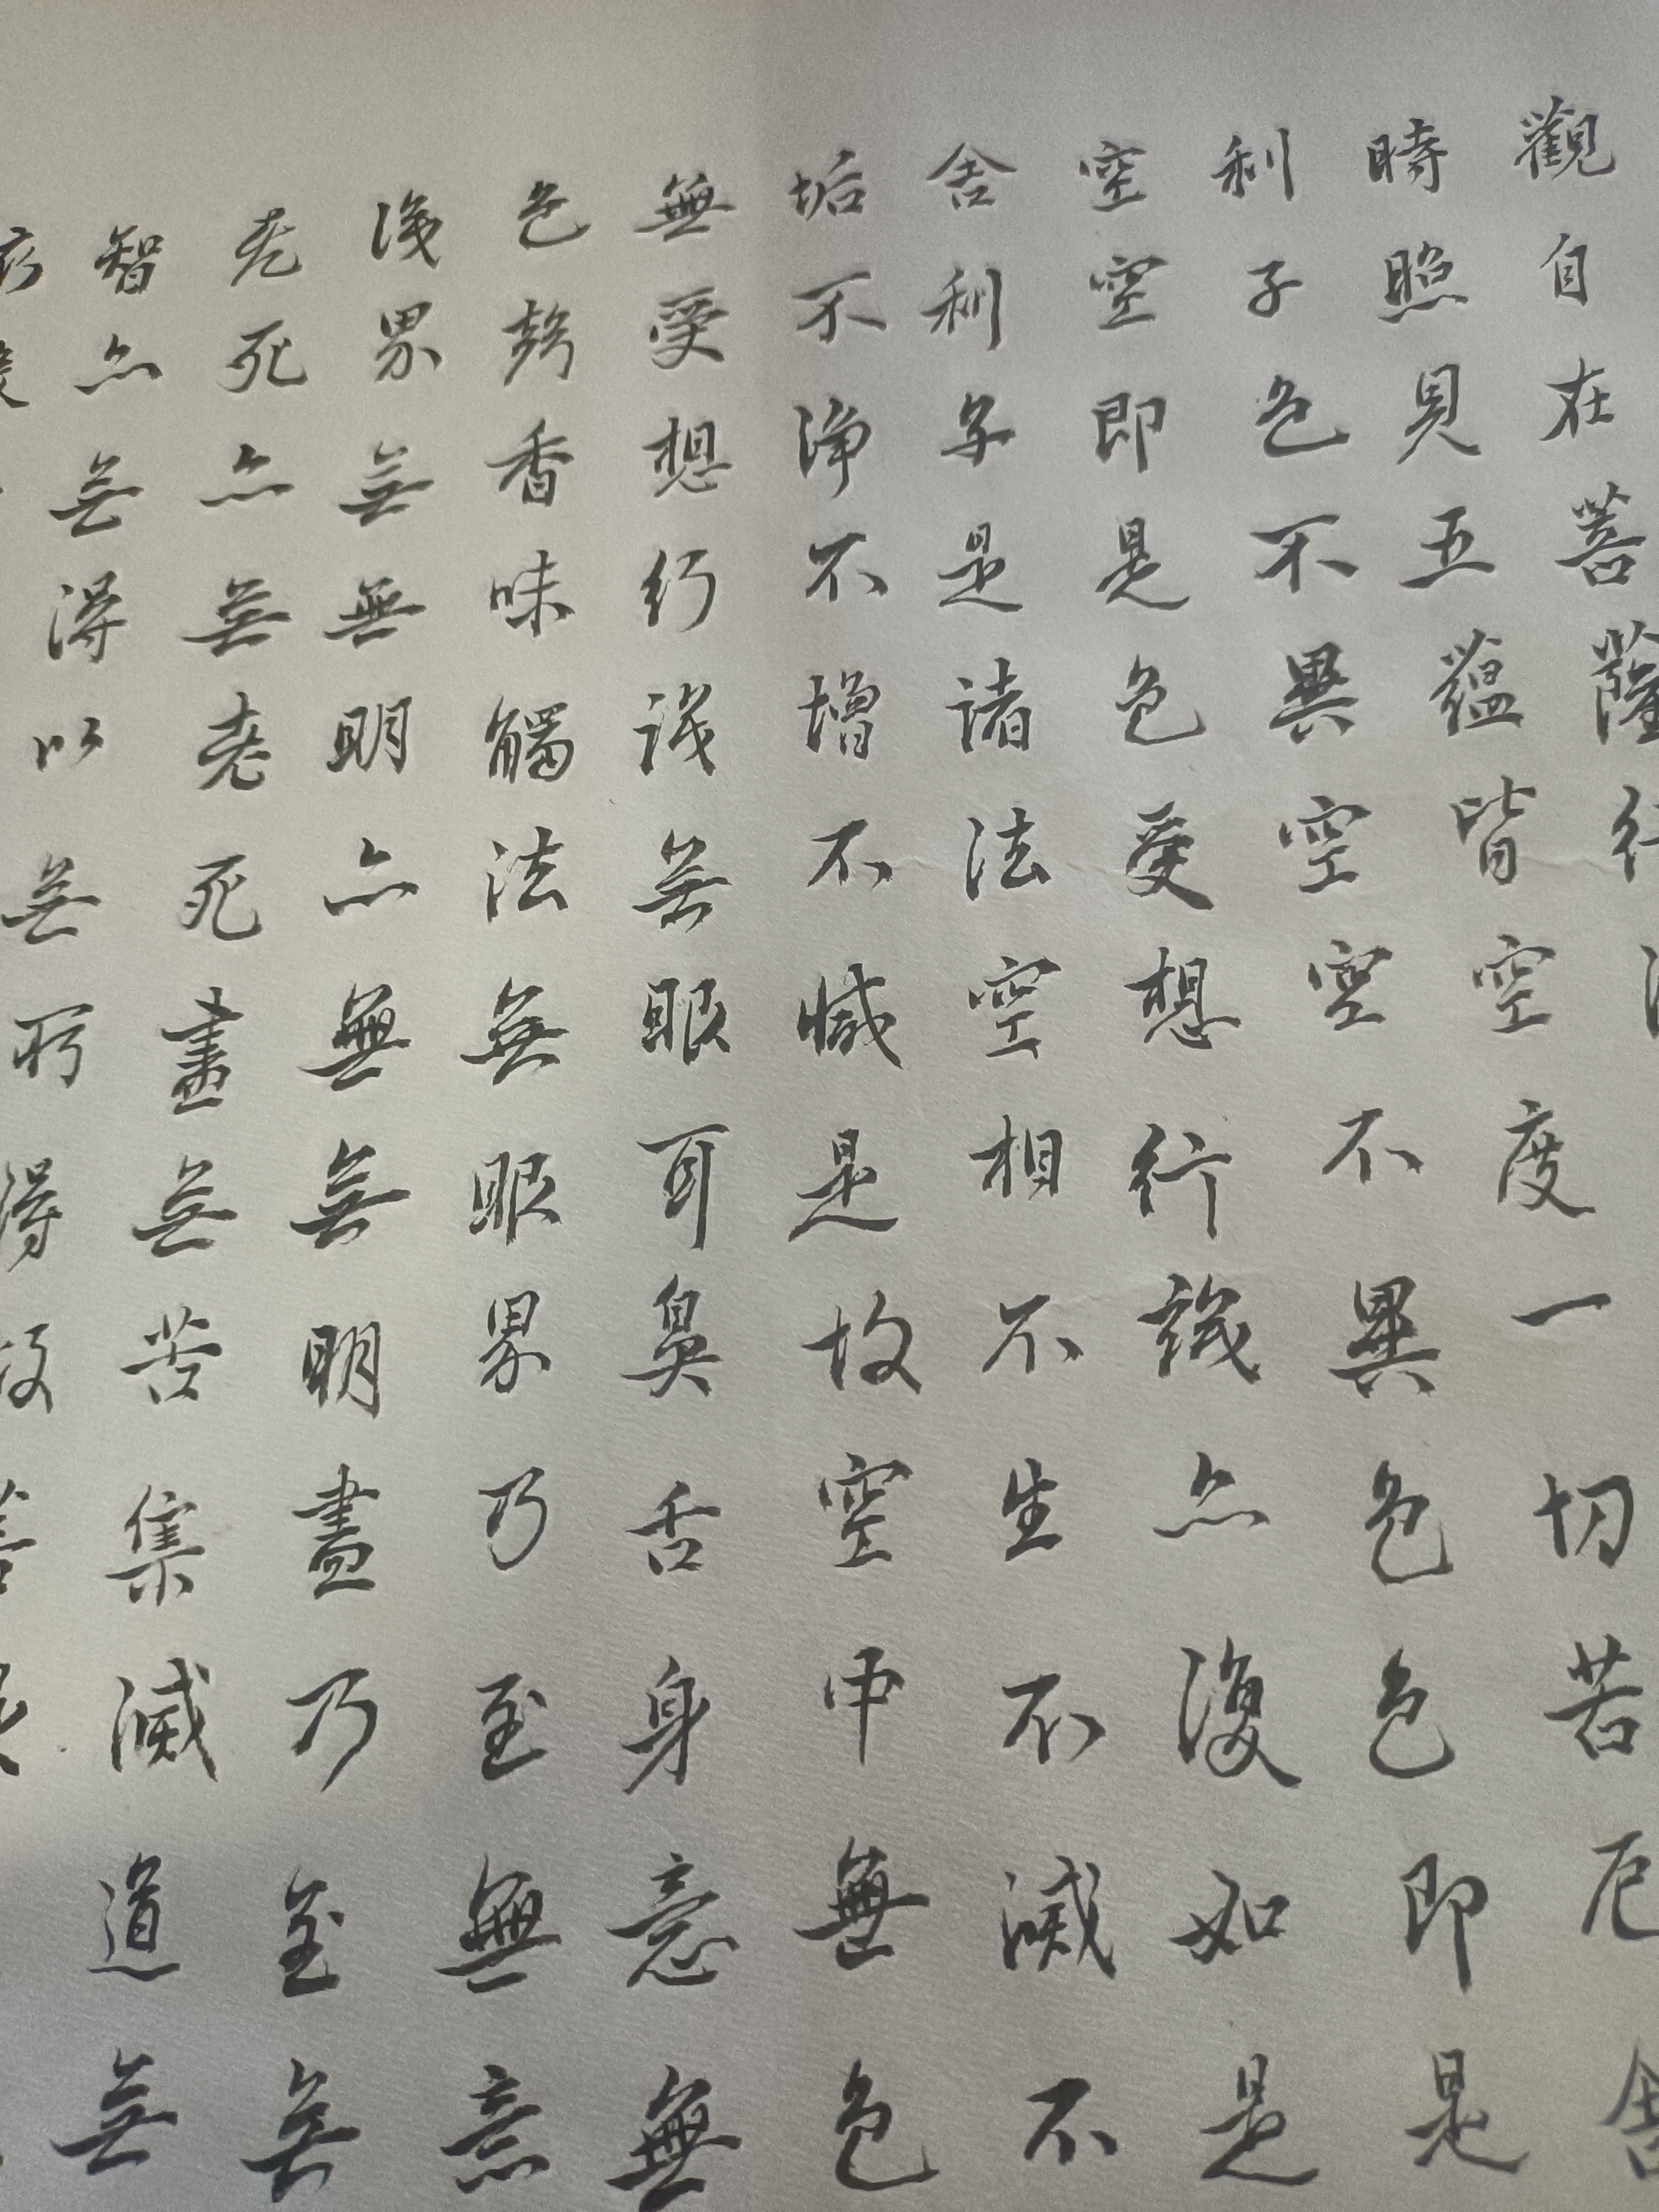 觀自在菩薩行
時照見五蘊皆空度一切苦厄舍
利子色不異空空不異色色即是
空空即是色受想行識亦復如是
舍利子是諸法空相不生不滅不
垢不淨不增不減是故空中無色
無受想行識無眼耳鼻舌身意無
色聲香味觸法無眼界乃至無意
識界無無明亦無無明盡乃至無
老死亦無老死盡無苦集滅道無
智亦無得以無所得故菩